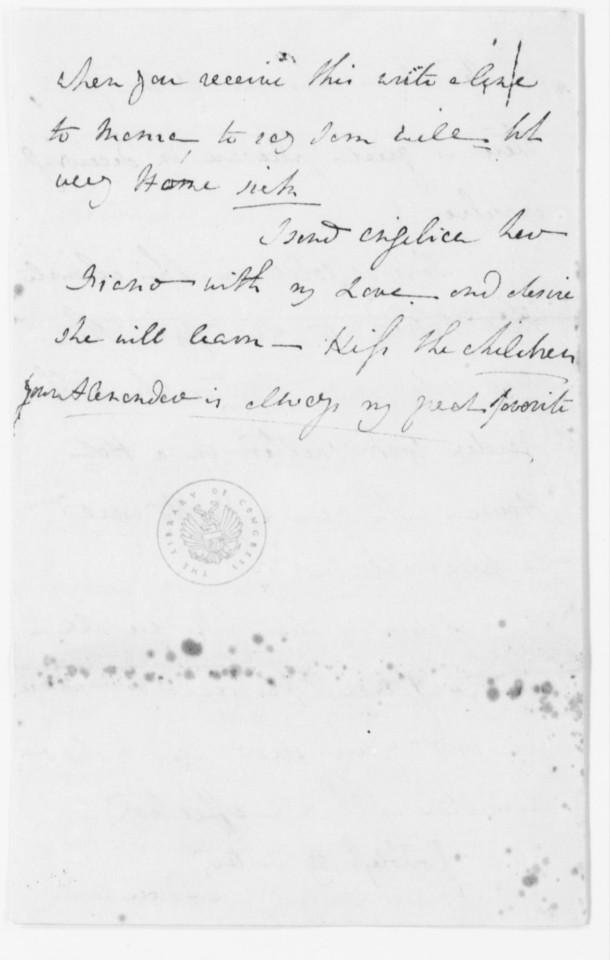 when you receive this write a line
to Mama to say I am well - but
very Home sick
I send Angelica her
Piano with my Love and desire
she will learn — Kiss the children
your Alexander is always my great favorite
THE LIBRARY OF CONGRESS